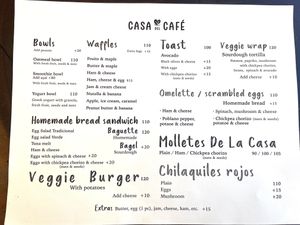 CASA DEL CAFÉ
Bowls
Add peanuts +20
Oatmeal bowl 110
With fresh fruit, seeds & nuts
Smoothie bowl
Add açaí +40
With fresh fruit, seeds & nuts
Yogurt bowl 110
Greek yogurt with granola,
fresh fruit, seeds and nuts
Waffles 110
Fruits & maple
Butter & maple
Ham & cheese
Ham, cheese & egg +15
Jam & cream cheese
Nutella & banana
Apple, ice cream, caramel
Peanut butter & banana
Toast 100
Avocado
Black olives +15
Nutella & banana
Ham & cheese
Eggs & cheese
Veggie wrap 120
Sourdough tortilla
Banana, paprika, mushroom
with chickpea chorizo,
beans, spinach & avocado
Add cheese +20
Omelette / scrambled eggs
Homemade bread 115
· Ham & cheese
· Poblano pepper,
potato & cheese
· Spinach, mushroom & cheese
· Chickpea chorizo
potatoe & cheese
Homemade bread sandwich 110
Egg Salad Tradicional
Egg salad Medio
Tuna melt
Ham & cheese
Eggs with spinach & cheese +20
Eggs with chickpea chorizo +20
Baguette
Homemade
Bagel
Sourdough +20
Molletes De La Casa
Plain / Ham / Chickpea chorizo 90 / 100 / 105
Veggie Burger 120
With potatoes
Add cheese +10
Chilaquiles rojos
Plain 110
Eggs +15
Mushroom +20
Extras: Butter, egg (1 pc), jam, cheese, ham, etc. +15